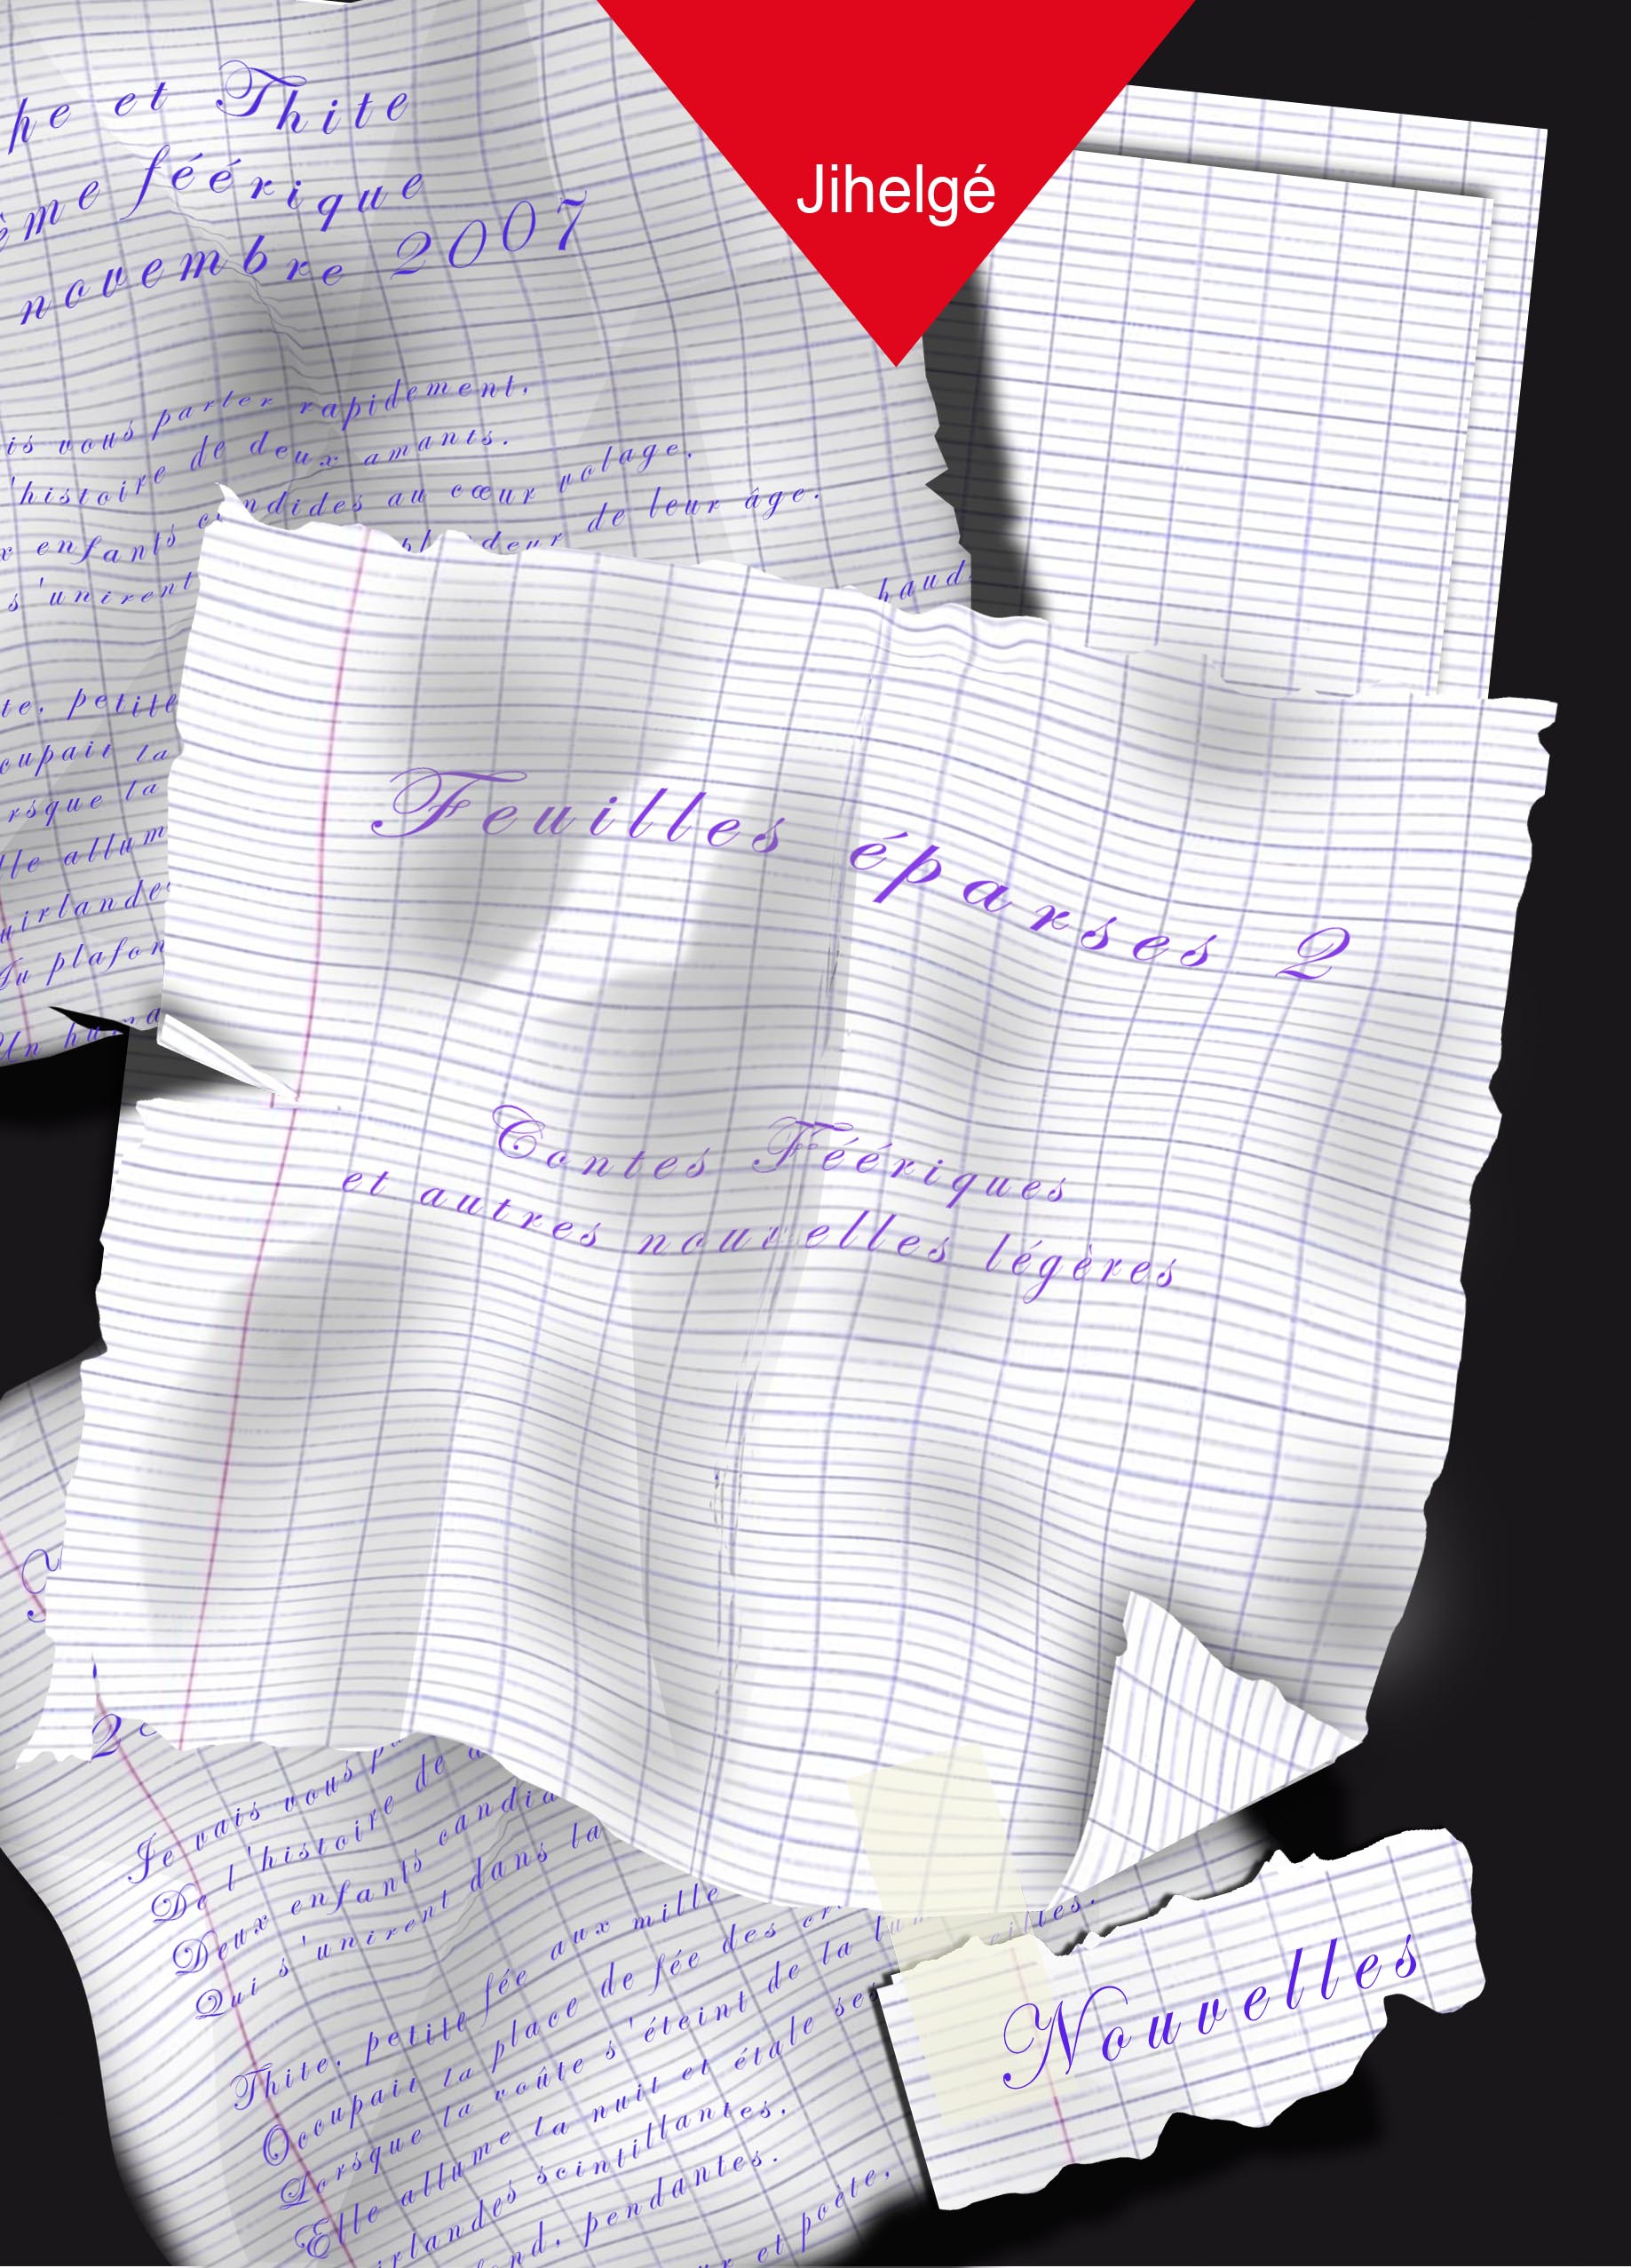 Jihelgé
he et Thite
ème féérique
novembre 2007
is vous parler rapidement,
'histoire de deux amants.
x enfants candides au cœur volage,
s'unirent de leur âge.
haud
te, petite
cupait la
rsque la
lle allum
uirlande
Au plafon
Un huma
Feuilles éparses 2
Contes Féériques
et autres nouvelles légères
Je vais vous pa
De l'histoire de
Deux enfants candid
Qui s'unirent dans la
Thite, petite fée aux mille
Occupait la place de fée des
Lorsque la voûte s'éteint de la
Elle allume la nuit et étale ses
irlandes scintillantes,
ond, pendantes.
et poète,
Nouvelles